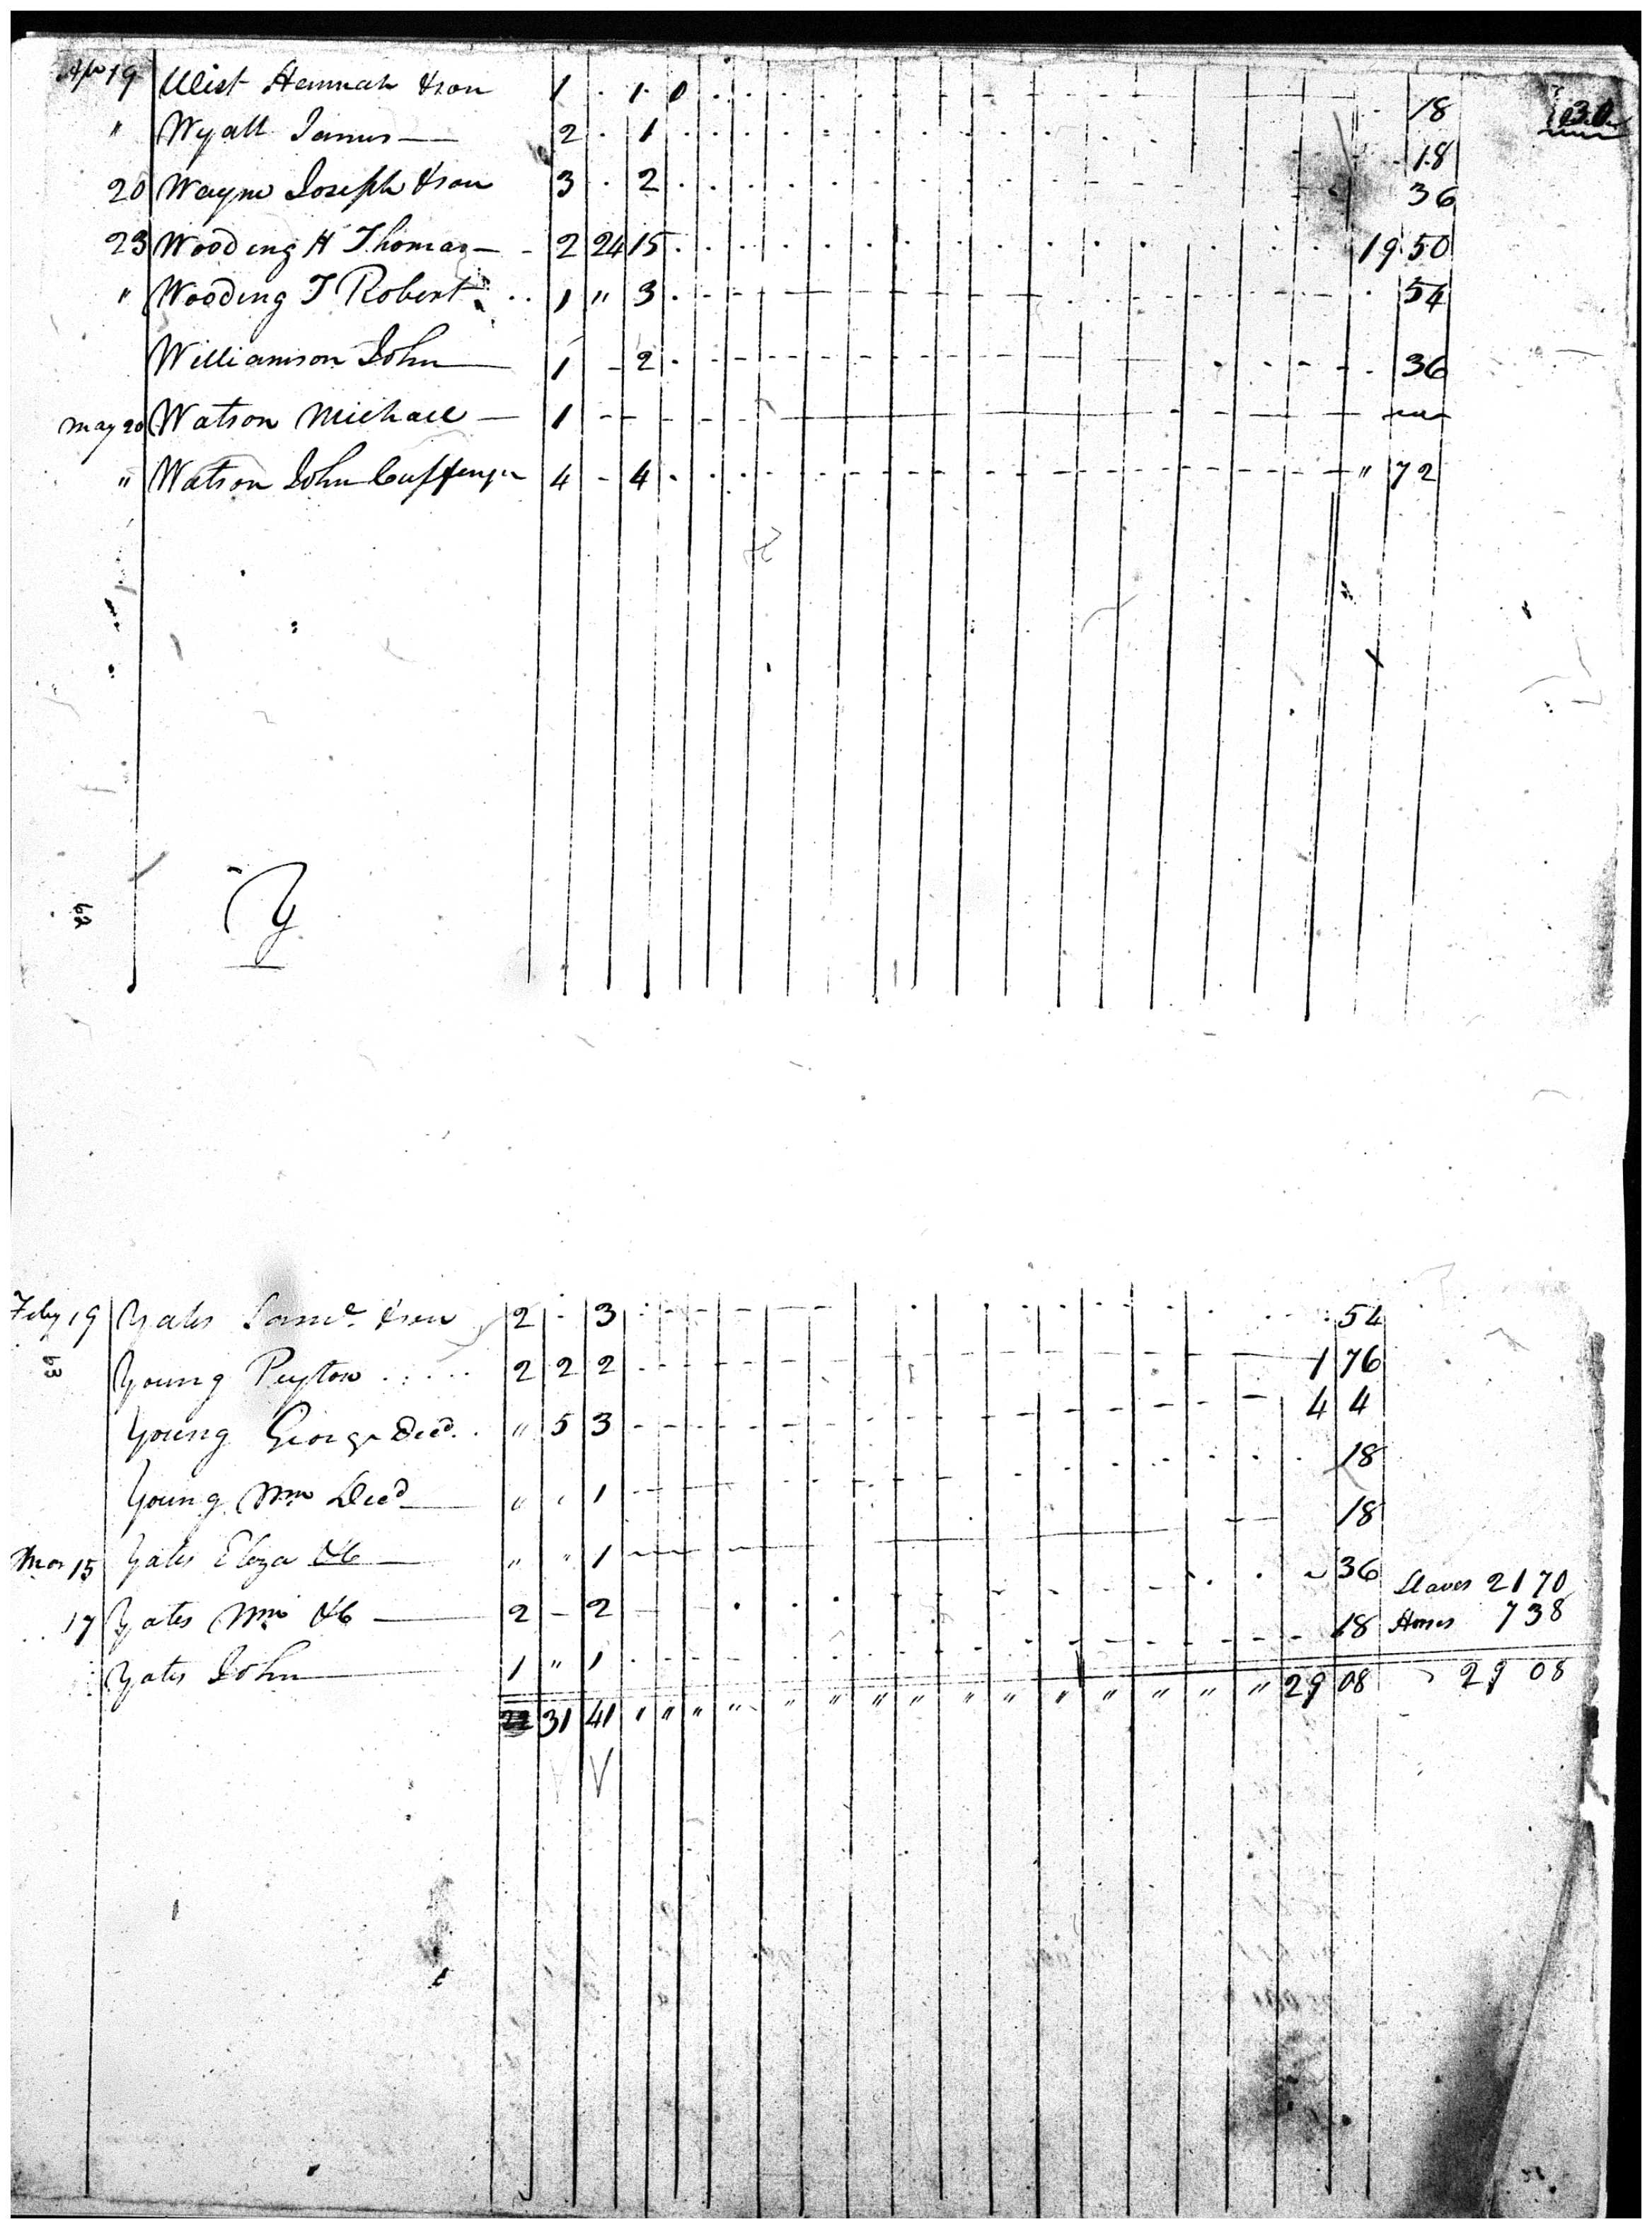 Apr 19 West Hannah & son 1 . 1 0 18
" Wyatt James 2 . 1 18
20 Wayne Joseph & son 3 . 2 36
23 Wooding H Thomas 2 24 15 19.50
" Wooding T Robert 1 " 3 54
Williamson John 1 - 2 36
May 20 Watson Michael 1
" Watson John 4 - 4 " 72
62
Y
Feby 19 Yates Saml. & son 2 . 3 54
63
Young Peyton 2 2 2 1 76
Young George Decd. " 5 3 4 4
Young Wm Decd " " 1 18
Mar 15 Yates Eliza " " 1 18
17 Yates Wm 2 - 2 36 Slaves 21 70
Yates John 1 " 1 18 Horses 7 38
31 41 " " " " " " " " " " " " " " " " 29 08 29 08